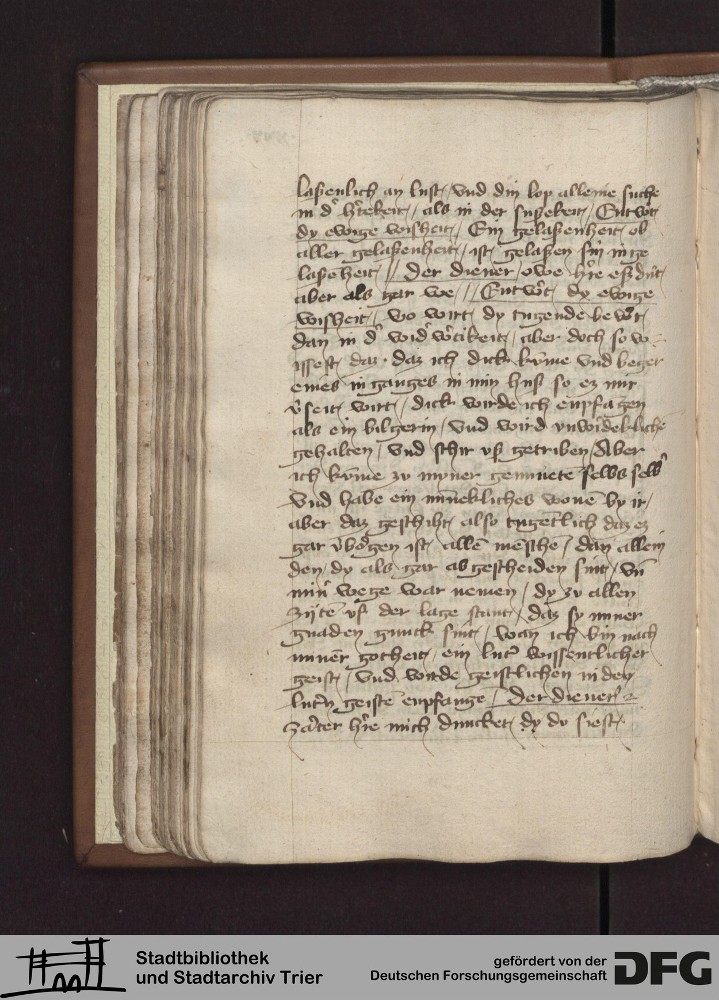 laßenlich an lust / vnd din lop alleine suche
in d' h'tekeit / als in der sußekeit / Entwort
dy ewige wisheit / Ein gelaßenheit ob
aller gelaßenheit / ist gelaßen sin in ge
laßeheit // Der diener / owe h're eß dut
aber als gar we // Entw't dy ewige
wisheit / wo wirt dy tugende bew't
dan in d' wid'w'tikeit / aber doch so wi
ssest daz daz ich dick kūme vnd beger
eines inganges in min huß so ez mir
v'seit wirt / dick wirde ich enpfagen
als ein bilgerin / vnd wird vnwirdekliche
gehalten / vnd schir vß getriben / Aber
ich kūme zu myner geminete selbs selb'
vnd habe ein mineklıches wonē by ir /
aber daz geschiht also tugētlich daz ez
gar v'bo'gen ist allē mēsche / dan allein
den / dy als gar abgescheiden sint / vn̄
min' wege war nemen / dy zu allen
zijtē vf der lage stant / daz sy miner
gnaden gnuck sint / wan ich bin nach
miner gotheit ein lut' wissentlicher
geist / vnd wirde geistlichen in den
lut'n geiste enpfange / Der diener
Zarter h're mich duncket / dy du siest
Stadtbibliothek
und Stadtarchiv Trier
gefördert von der
Deutschen Forschungsgemeinschaft
DFG